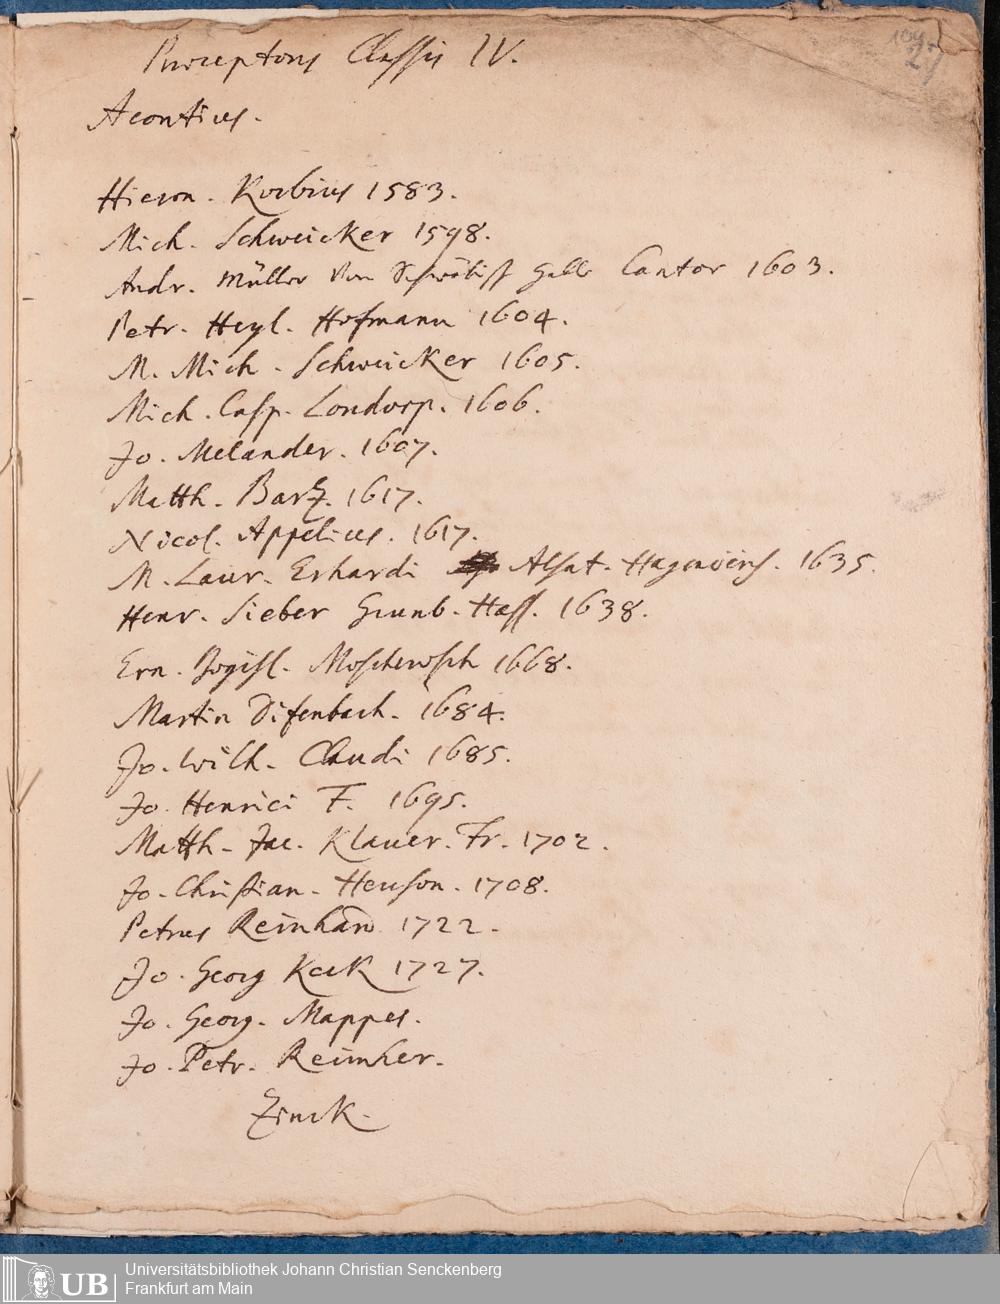 Praeceptores Classis IV.
Acontius.
Hieron. Korbius 1583.
Mich. Schweicker 1598.
Andr. Müller von Schwäbisch Hall Cantor 1603.
Petr. Heyl. Hofmann 1604.
M. Mich. Schweicker 1605.
Mich. Casp. Londorp. 1606.
Jo. Melander. 1607.
Matth. Bartz. 1617.
Nicol. Appelius. 1617.
M. Laur. Erhardi Alsat. Hagenoiens. 1635.
Henr. Sieber Grunb. Hass. 1638.
Ern. Bogisl. Moscherosch 1668.
Martin Difenbach. 1684.
Jo. Wilh. Claudi 1685.
Jo. Henrici F. 1695.
Matth. Jac. Klauer. Fr. 1702.
Jo. Christian. Henson. 1708.
Petrus Reinhard 1722.
Jo. Georg Keck 1727.
Jo. Georg. Mappes.
Jo. Petr. Reimher.
Zinck.
UB Universitätsbibliothek Johann Christian Senckenberg
Frankfurt am Main